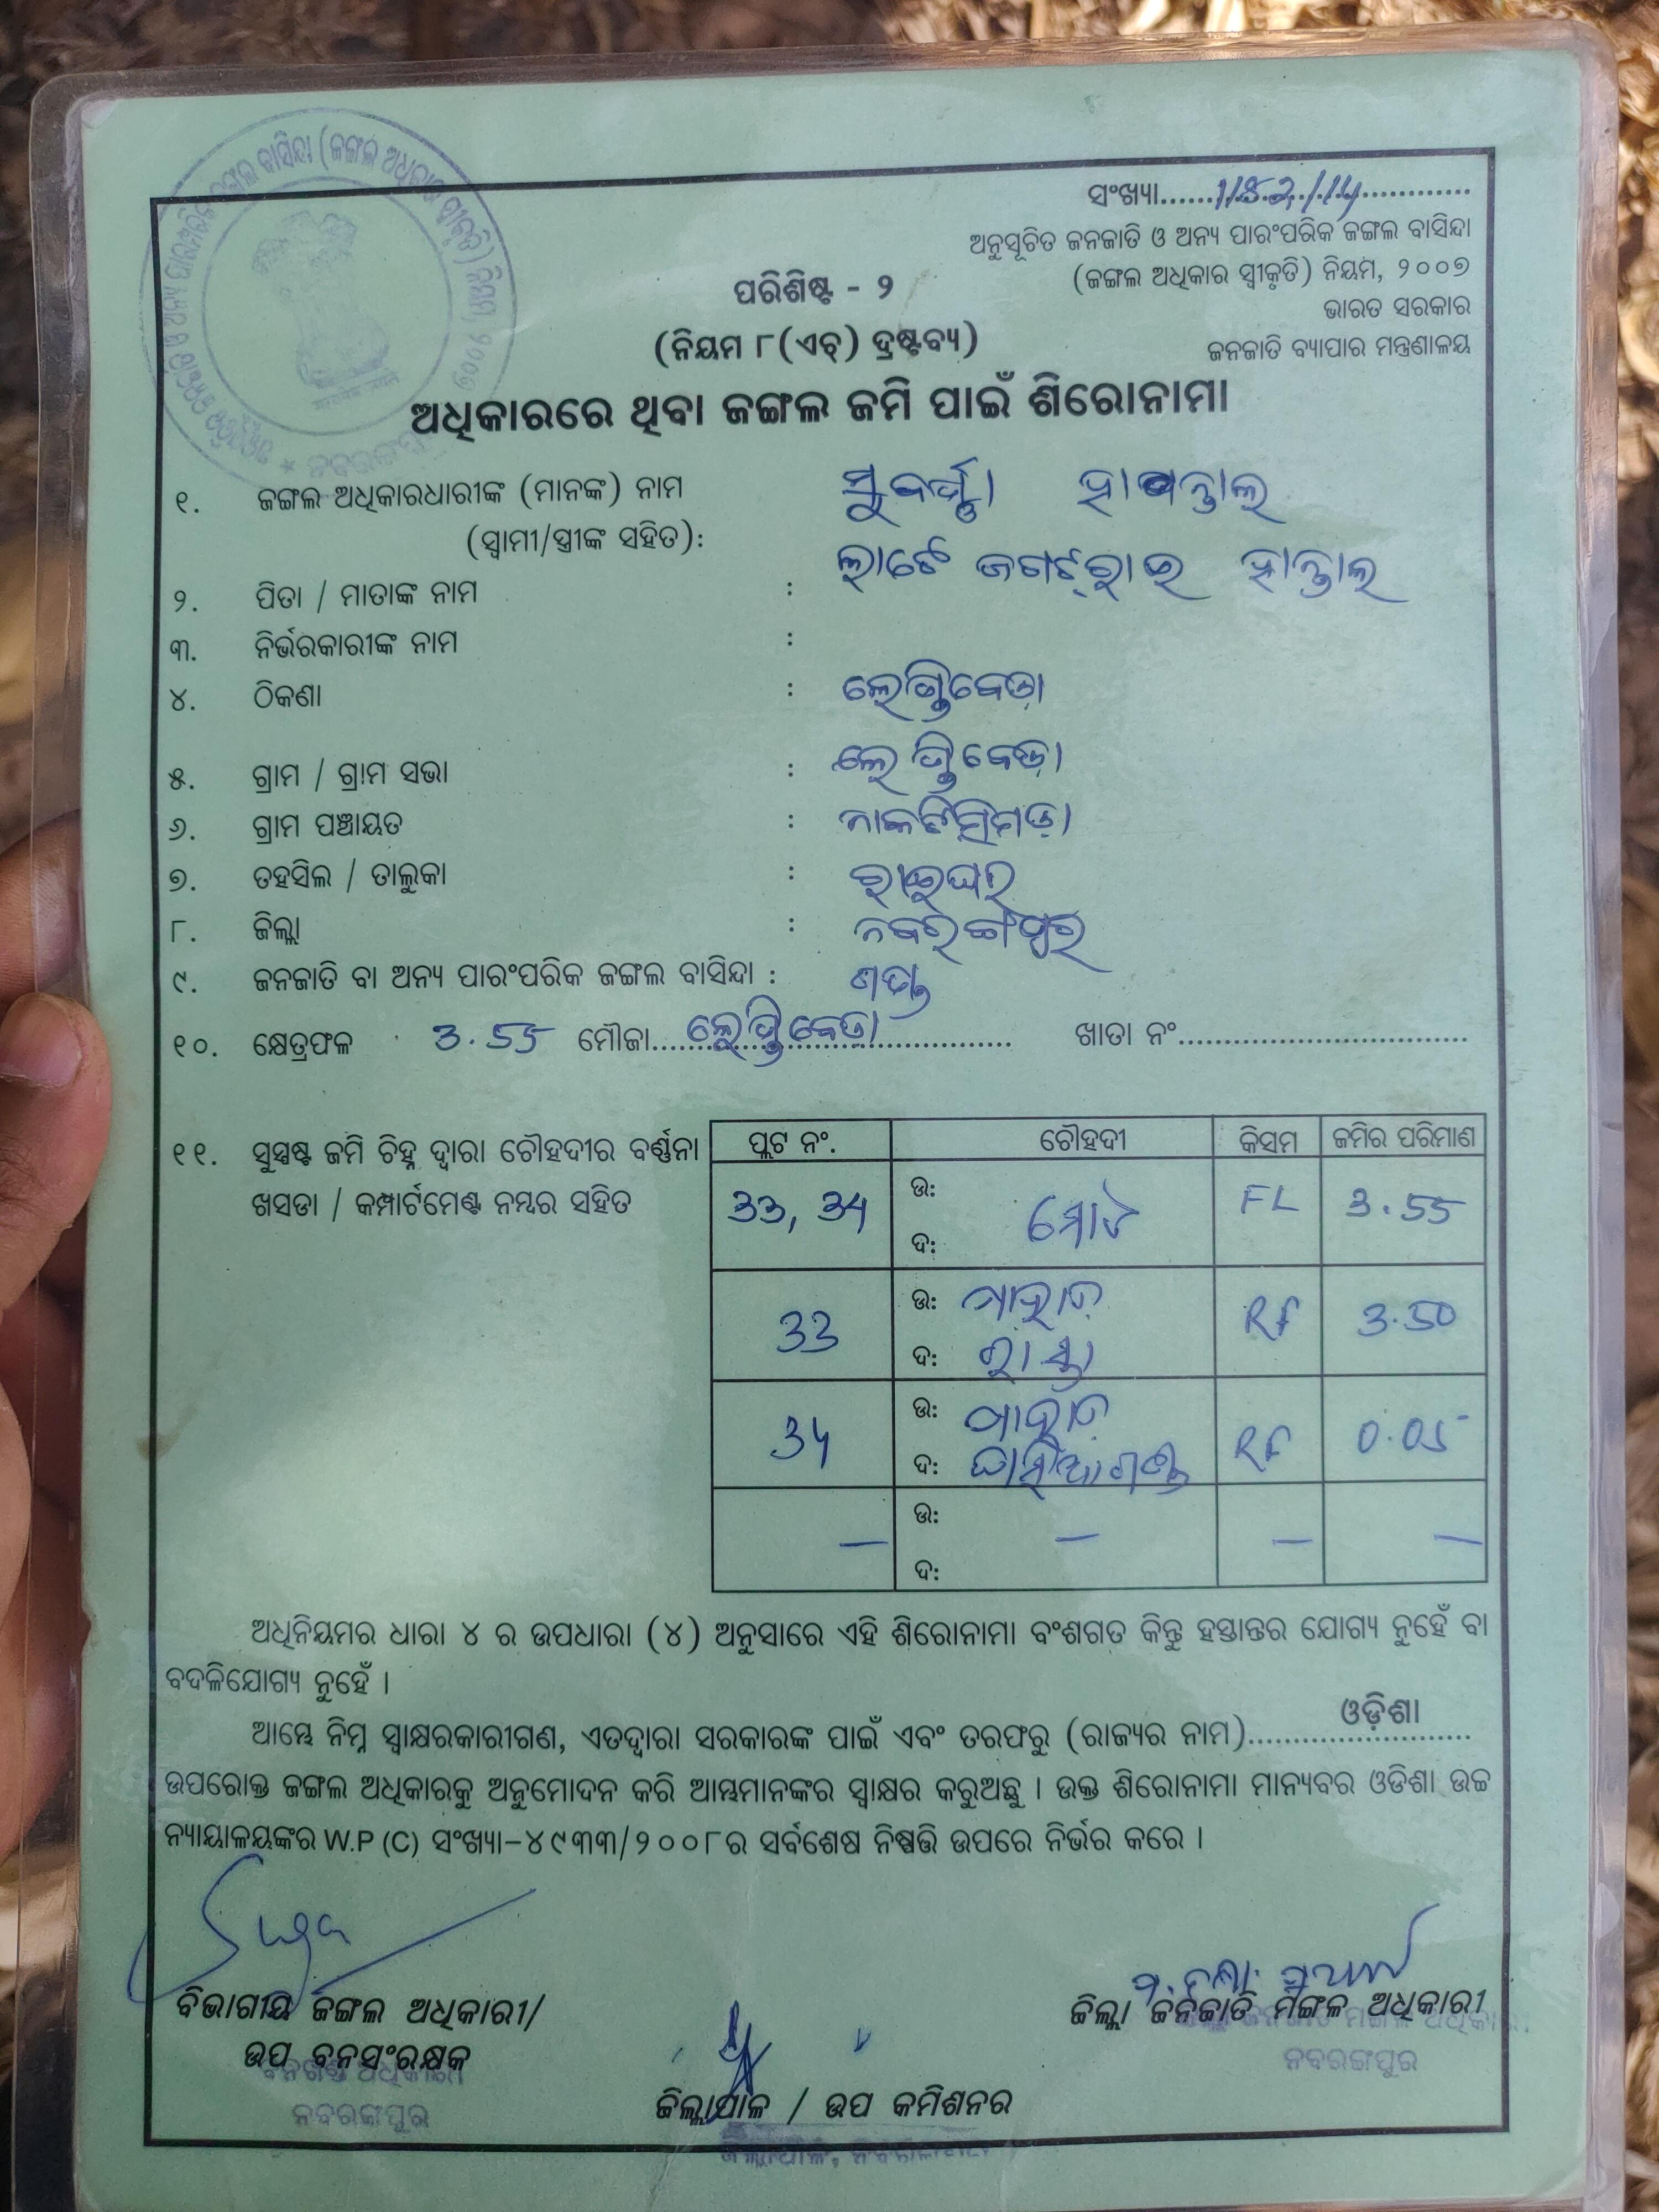 ଅନୁସୂଚିତ ଜନଜାତି ଓ ଅନ୍ୟ ପାରଂପରିକ ଜଙ୍ଗଲ ବାସିନ୍ଦା (ଜଙ୍ଗଲ ଅଧିକାର ସ୍ୱୀକୃତି) ନିୟମ, ୨୦୦୭
ସଂଖ୍ୟା
ଅନୁସୂଚିତ ଜନଜାତି ଓ ଅନ୍ୟ ପାରଂପରିକ ଜଙ୍ଗଲ ବାସିନ୍ଦା
(ଜଙ୍ଗଲ ଅଧିକାର ସ୍ୱୀକୃତି) ନିୟମ, ୨୦୦୭
ଭାରତ ସରକାର
ଜନଜାତି ବ୍ୟାପାର ମନ୍ତ୍ରଣାଳୟ
ପରିଶିଷ୍ଟ - ୨
(ନିୟମ ୮(ଏଚ୍) ଦ୍ରଷ୍ଟବ୍ୟ)
ଅଧିକାରରେ ଥିବା ଜଙ୍ଗଲ ଜମି ପାଇଁ ଶିରୋନାମା
୧. ଜଙ୍ଗଲ ଅଧିକାରଧାରୀଙ୍କ (ମାନଙ୍କ) ନାମ ସୁବର୍ଣ୍ଣା
(ସ୍ୱାମୀ/ସ୍ତ୍ରୀଙ୍କ ସହିତ):
୨. ପିତା / ମାତାଙ୍କ ନାମ : ହାନ୍ତାଲ
୩. ନିର୍ଭରକାରୀଙ୍କ ନାମ :
୪. ଠିକଣା :
୫. ଗ୍ରାମ / ଗ୍ରାମ ସଭା :
୬. ଗ୍ରାମ ପଞ୍ଚାୟତ :
୭. ତହସିଲ / ତାଲୁକା : ରାଇଘର
୮. ଜିଲ୍ଲା : ନବରଙ୍ଗପୁର
୯. ଜନଜାତି ବା ଅନ୍ୟ ପାରଂପରିକ ଜଙ୍ଗଲ ବାସିନ୍ଦା :
୧୦. କ୍ଷେତ୍ରଫଳ 3.55 ମୌଜା ଖାତା ନଂ
୧୧. ସୁସ୍ପଷ୍ଟ ଜମି ଚିହ୍ନ ଦ୍ୱାରା ଚୌହଦୀର ବର୍ଣ୍ଣନା
ଖସଡା / କମ୍ପାର୍ଟମେଣ୍ଟ ନମ୍ବର ସହିତ
ପ୍ଲଟ ନଂ. ଚୌହଦୀ କିସମ ଜମିର ପରିମାଣ
33, 34 ଉ: ଦ: ମୋଟ FL 3.55
33 ଉ: ପାହାଡ଼ Rf 3.50
ଦ: ରାସ୍ତା
34 ଉ: ପାହାଡ଼ Rf 0.05
ଦ:
— ଉ: — — —
ଦ:
ଅଧିନିୟମର ଧାରା ୪ ର ଉପଧାରା (୪) ଅନୁସାରେ ଏହି ଶିରୋନାମା ବଂଶଗତ କିନ୍ତୁ ହସ୍ତାନ୍ତର ଯୋଗ୍ୟ ନୁହେଁ ବା
ବଦଳିଯୋଗ୍ୟ ନୁହେଁ ।
ଆମ୍ଭେ ନିମ୍ନ ସ୍ୱାକ୍ଷରକାରୀଗଣ, ଏତଦ୍ୱାରା ସରକାରଙ୍କ ପାଇଁ ଏବଂ ତରଫରୁ (ରାଜ୍ୟର ନାମ) ଓଡ଼ିଶା
ଉପରୋକ୍ତ ଜଙ୍ଗଲ ଅଧିକାରକୁ ଅନୁମୋଦନ କରି ଆମ୍ଭମାନଙ୍କର ସ୍ୱାକ୍ଷର କରୁଅଛୁ । ଉକ୍ତ ଶିରୋନାମା ମାନ୍ୟବର ଓଡିଶା ଉଚ୍ଚ
ନ୍ୟାୟାଳୟଙ୍କର W.P (C) ସଂଖ୍ୟା-୪୯୩୩/୨୦୦୮ର ସର୍ବଶେଷ ନିଷ୍ପତ୍ତି ଉପରେ ନିର୍ଭର କରେ ।
ବିଭାଗୀୟ ଜଙ୍ଗଲ ଅଧିକାରୀ/
ଉପ ବନସଂରକ୍ଷକ
ବନଖଣ୍ଡ ଅଧିକାରୀ
ନବରଙ୍ଗପୁର
ଜିଲ୍ଲାପାଳ / ଉପ କମିଶନର
ଜିଲ୍ଲା ଜନଜାତି ମଙ୍ଗଳ ଅଧିକାରୀ
ଜିଲ୍ଲା ଜନଜାତି ମଙ୍ଗଳ ଅଧିକାରୀ
ନବରଙ୍ଗପୁର